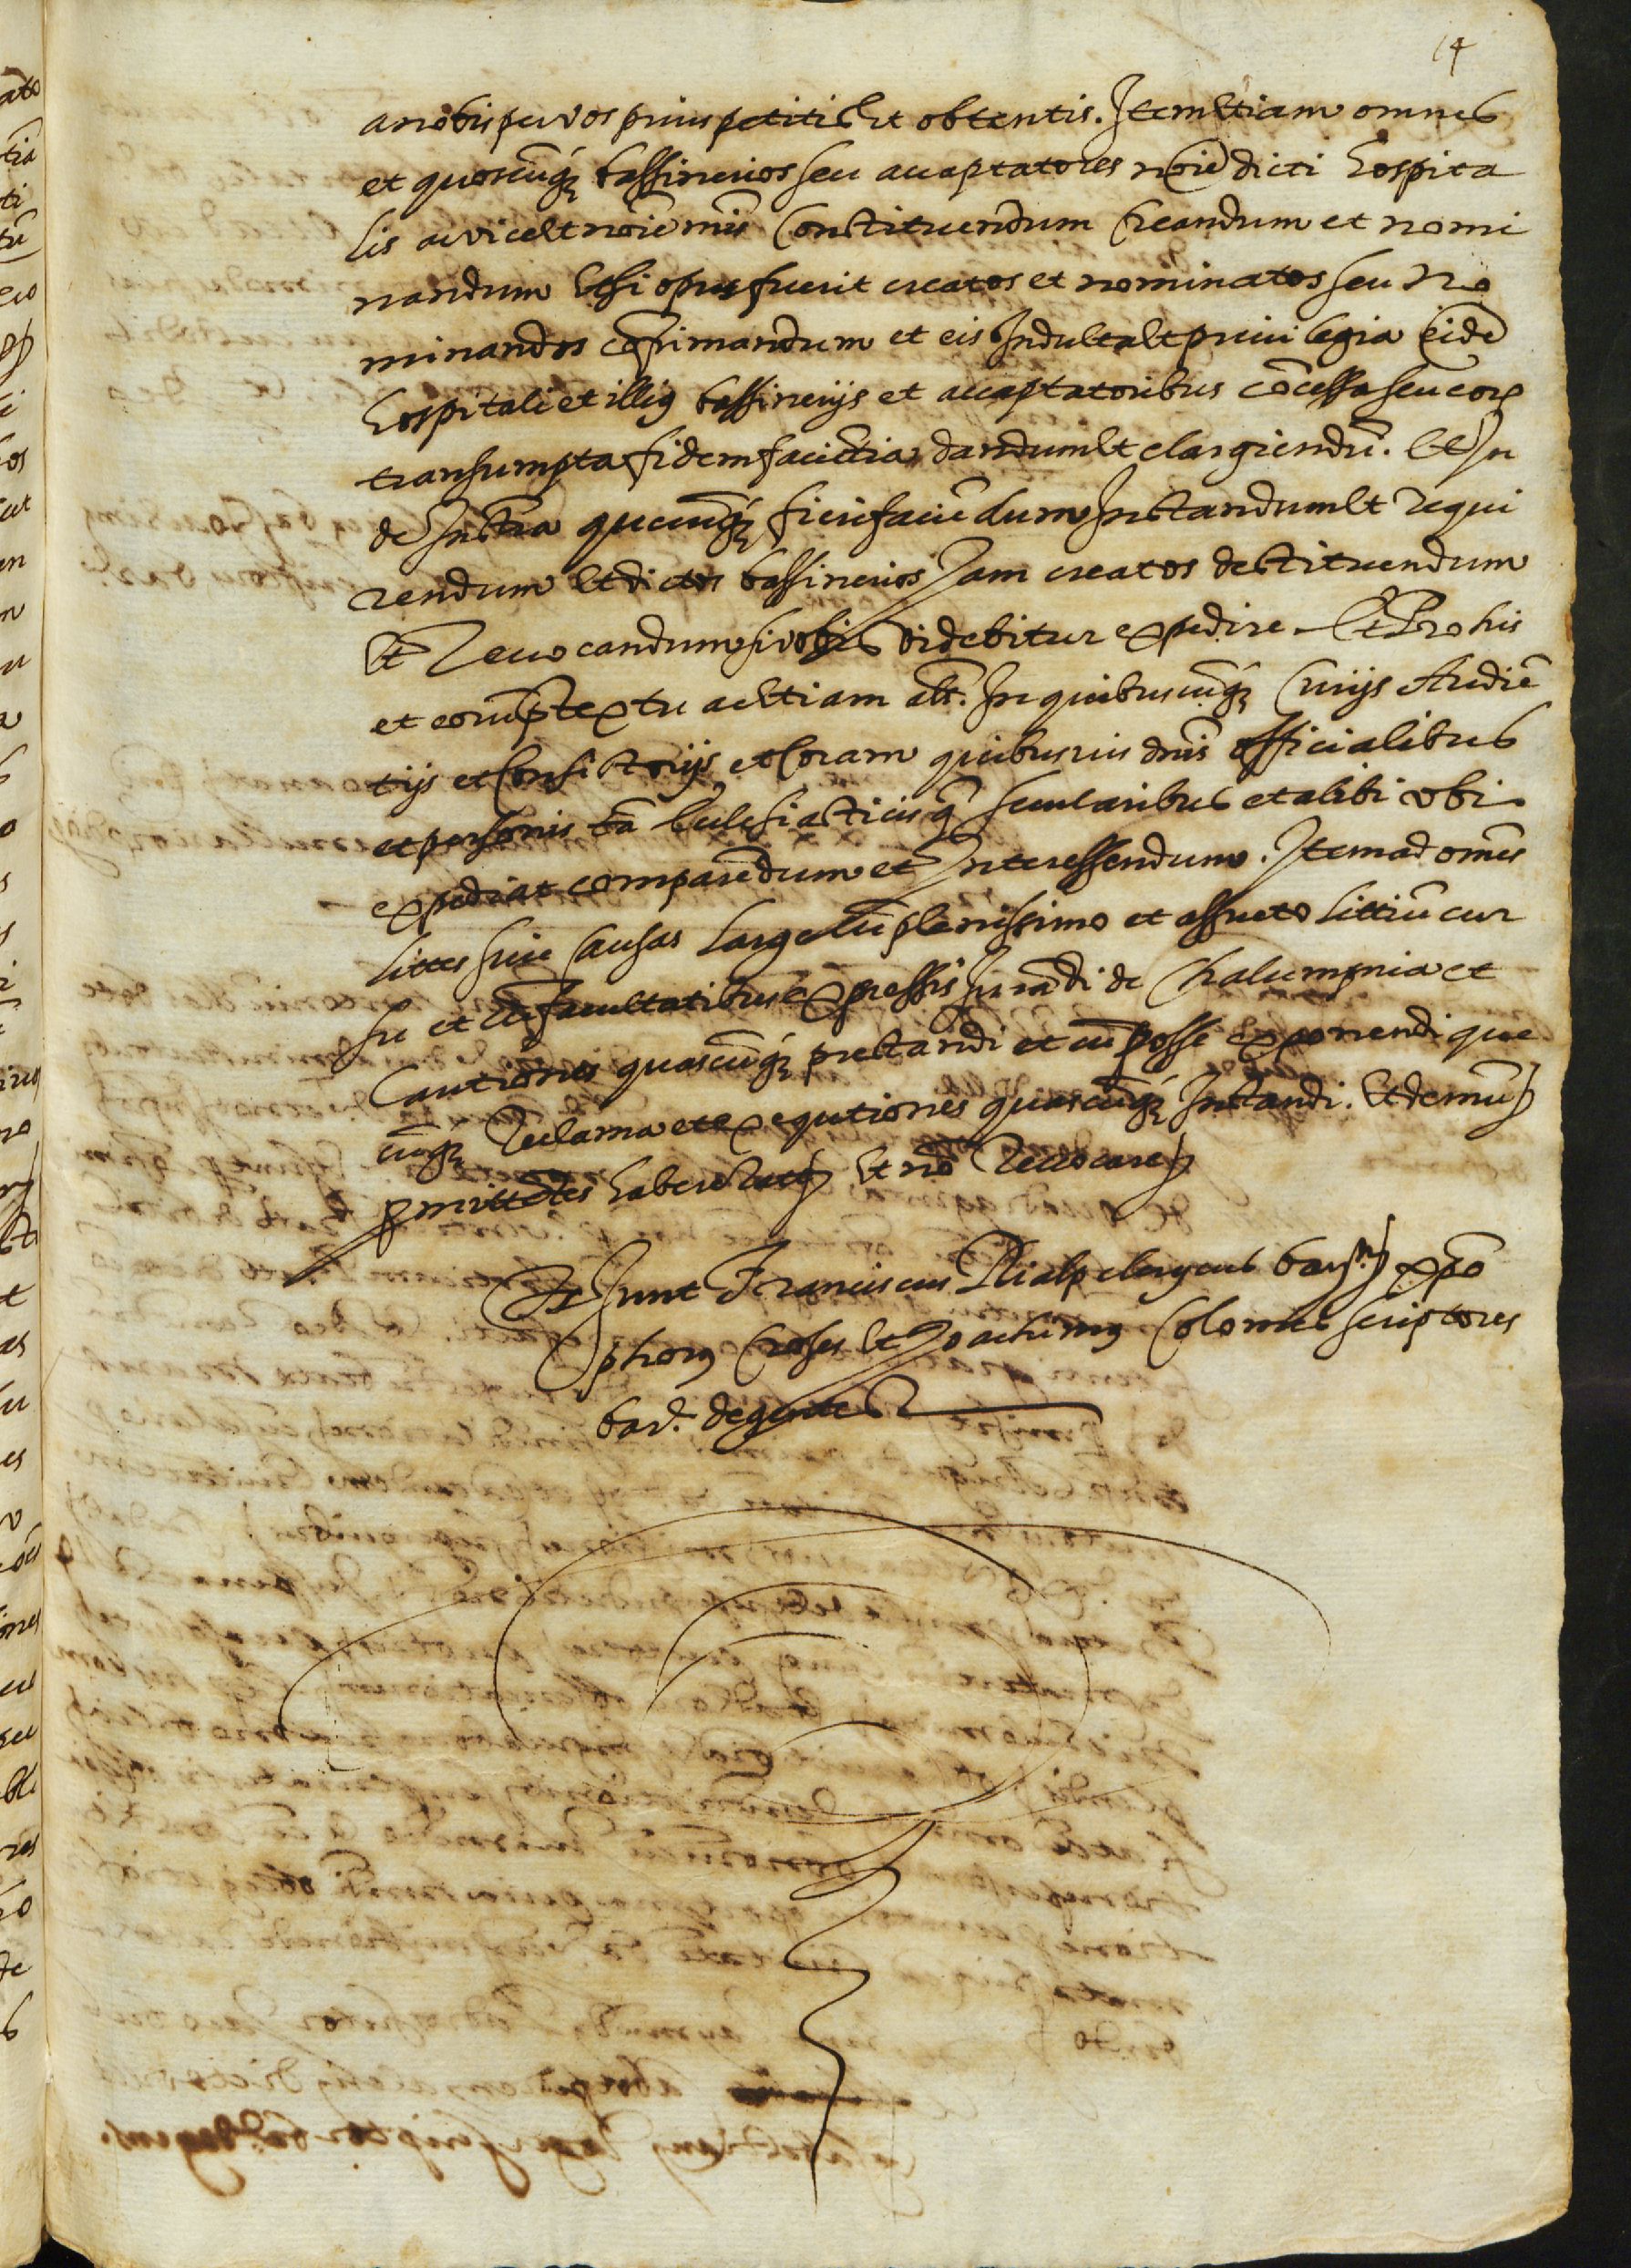 14
a nobis per vos prius petitis Et obtentis. Item Etiam omnes
et quoscūq3 bassinerios seu acaptatores noīe dicti hospita
lis ac vice Et noīe nrīs Constituendum Creandum et nomi
nandum Et si opus fuerit creatos et nominatos seu No
minandos cōfirmandum et eis Indulta Et privilegia eidē
hospitali et illius bassinerijs et acaptatoribus cōcessa seu eoꝝ
transumpta fidem faciētia dandum Et elargiendū. Et In
de Instrā quecūq3 fieri faciēdum Instandum Et Requi
rendum Et dictos bassinerios Jam creatos destituendum
Et Revocandum si vobis videbitur expedire. Et Pro his
et eorū ptextu ac Etiam als̄. In quibuscūq3 Curijs Audiē
tijs et Consistorijs et Coram quibusvis dnīs officialibus
et personis tā Ecclesiasticis q̄ secularibus et alibi vbi
expediat comparēdum et Interessendum. Item ad omēs
littes sive Causas large cū plenissimo et assueto littiū cur
su et cū facultatibus expressis Jurādi de Chalumpnia et
Cautiones quascūq3 prestandi et cū posse exponendi que
cūq3 Reclama et exequtiones quascūq3 Instandi. Et demū
ꝓmittētes habere Rat Et nō Revocare
Ts sunt Franciscus Rialp clericus barⁿ xpō
phorus Croses Et Joachimus Colomer scriptores
bar. degentes